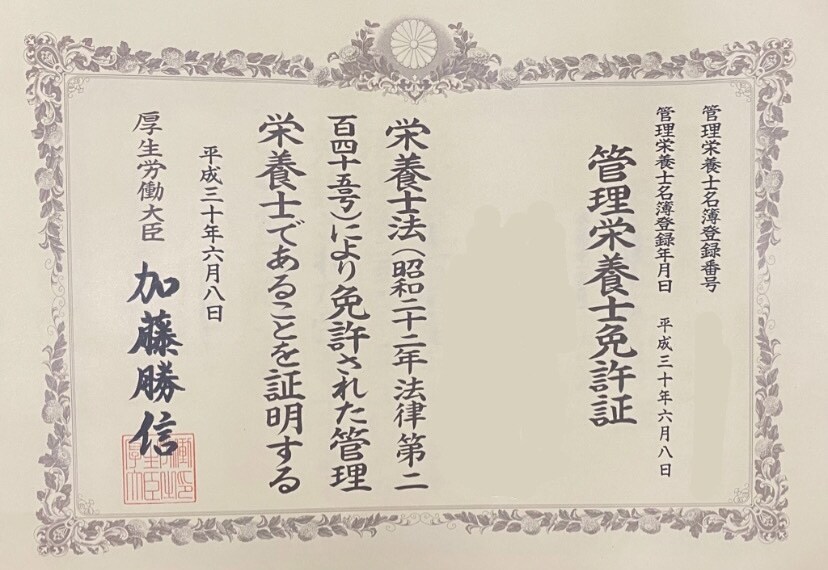 管理栄養士名簿登録番号
管理栄養士名簿登録年月日 平成三十年六月八日
管理栄養士免許証
栄養士法(昭和二十二年法律第二
百四十五号)により免許された管理
栄養士であることを証明する
平成三十年六月八日
厚生労働大臣 加藤勝信